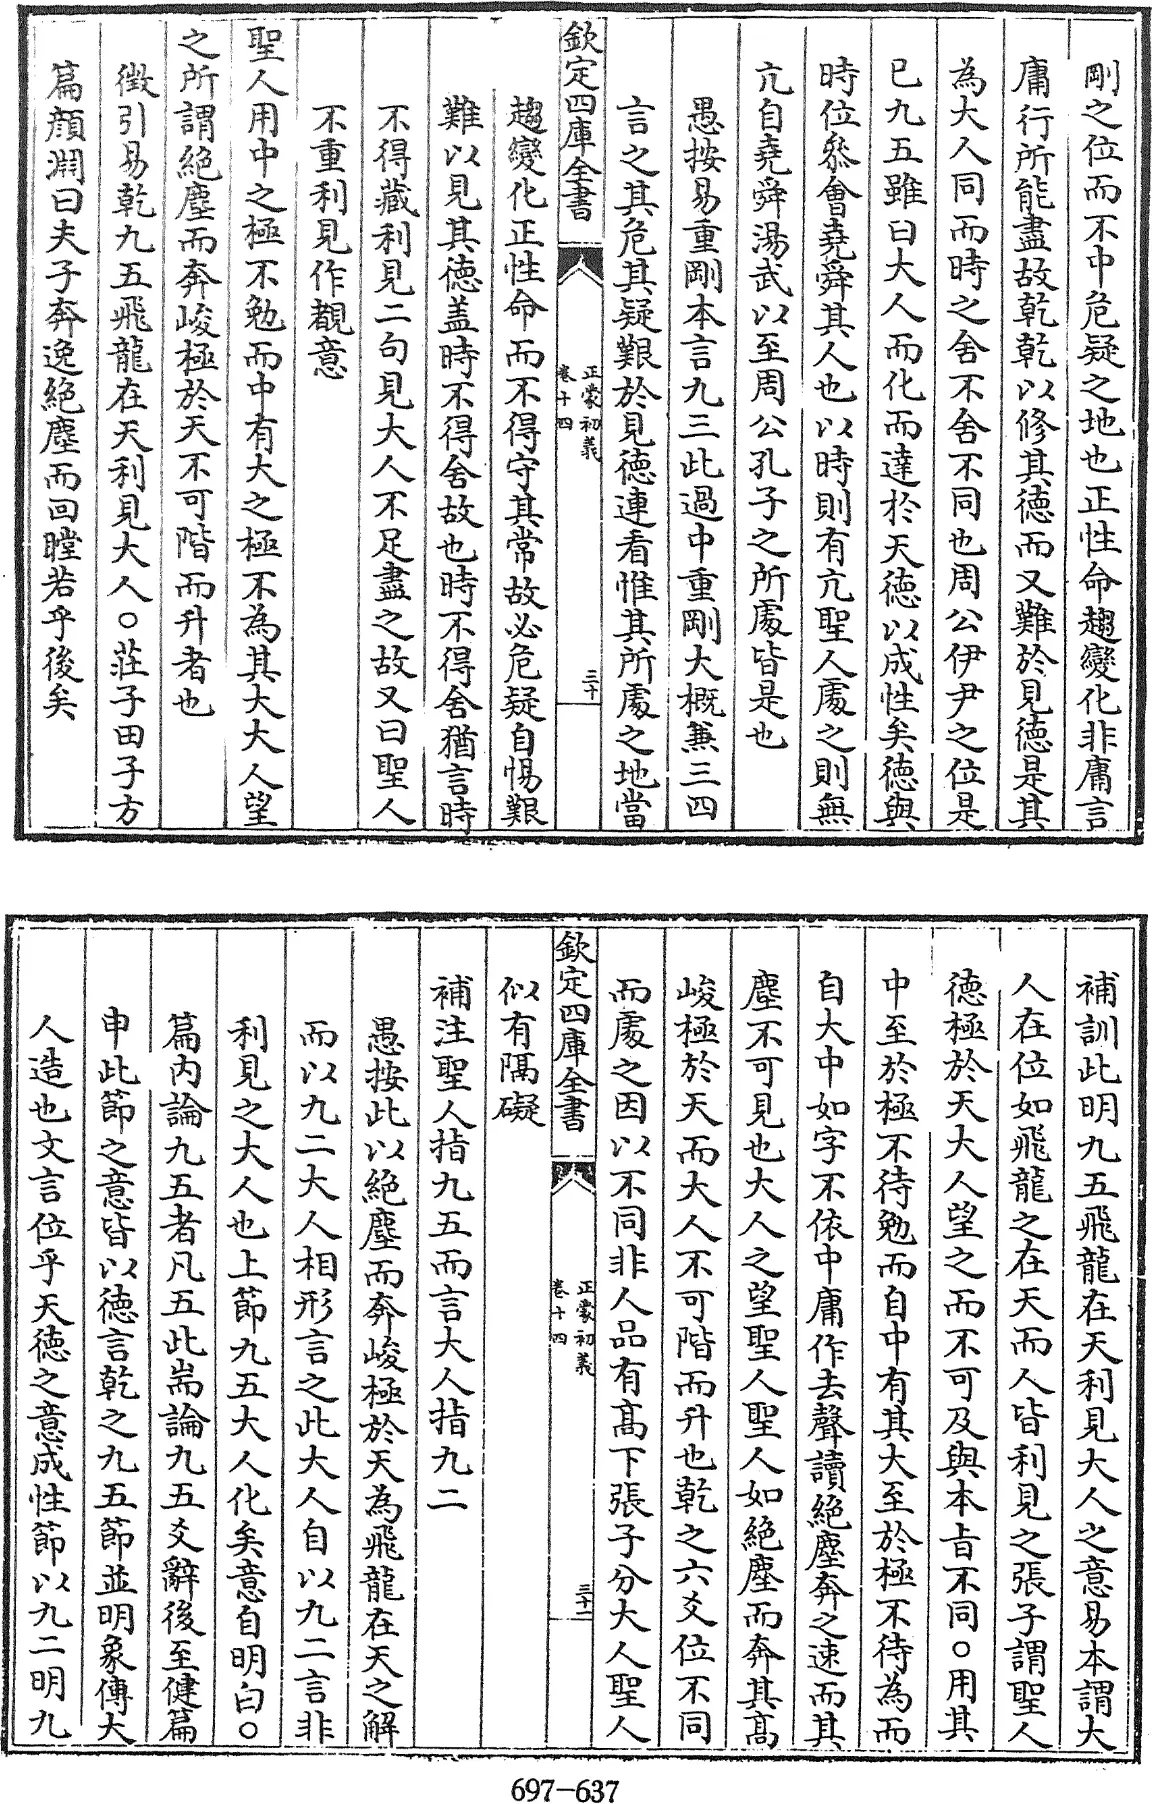 剛之位而不中危疑之地也正性命趨變化非庸言
庸行所能盡故乾乾以修其德而又難於見德是其
為大人同而時之舍不舍不同也周公伊尹之位是
已九五雖曰大人而化而達於天德以成性矣德與
時位叅會堯舜其人也以時則有亢聖人處之則無
亢自堯舜湯武以至周公孔子之所處皆是也
愚按易重剛本言九三此過中重剛大概兼三四
言之其危其疑艱於見德連看惟其所處之地當
欽定四庫全書
正蒙初義
卷十四
三十
趨變化正性命而不得守其常故必危疑自惕艱
難以見其德盖時不得舍故也時不得舍猶言時
不得藏利見二句見大人不足盡之故又曰聖人
不重利見作覩意
聖人用中之極不勉而中有大之極不為其大大人望
之所謂絕塵而奔峻極於天不可階而升者也
徵引易乾九五飛龍在天利見大人○莊子田子方
篇顔淵曰夫子奔逸絕塵而回瞠若乎後矣
補訓此明九五飛龍在天利見大人之意易本謂大
人在位如飛龍之在天而人皆利見之張子謂聖人
德極於天大人望之而不可及與本旨不同○用其
中至於極不待勉而自中有其大至於極不待為而
自大中如字不依中庸作去聲讀絕塵奔之速而其
塵不可見也大人之望聖人聖人如絕塵而奔其高
峻極於天而大人不可階而升也乾之六爻位不同
而處之因以不同非人品有高下張子分大人聖人
欽定四庫全書
正蒙初義
卷十四
三十一
似有隔礙
補注聖人指九五而言大人指九二
愚按此以絕塵而奔峻極於天為飛龍在天之解
而以九二大人相形言之此大人自以九二言非
利見之大人也上節九五大人化矣意自明白○
篇内論九五者凡五此耑論九五爻辭後至健篇
申此節之意皆以德言乾之九五節並明彖傳大
人造也文言位乎天德之意成性節以九二明九
697-637